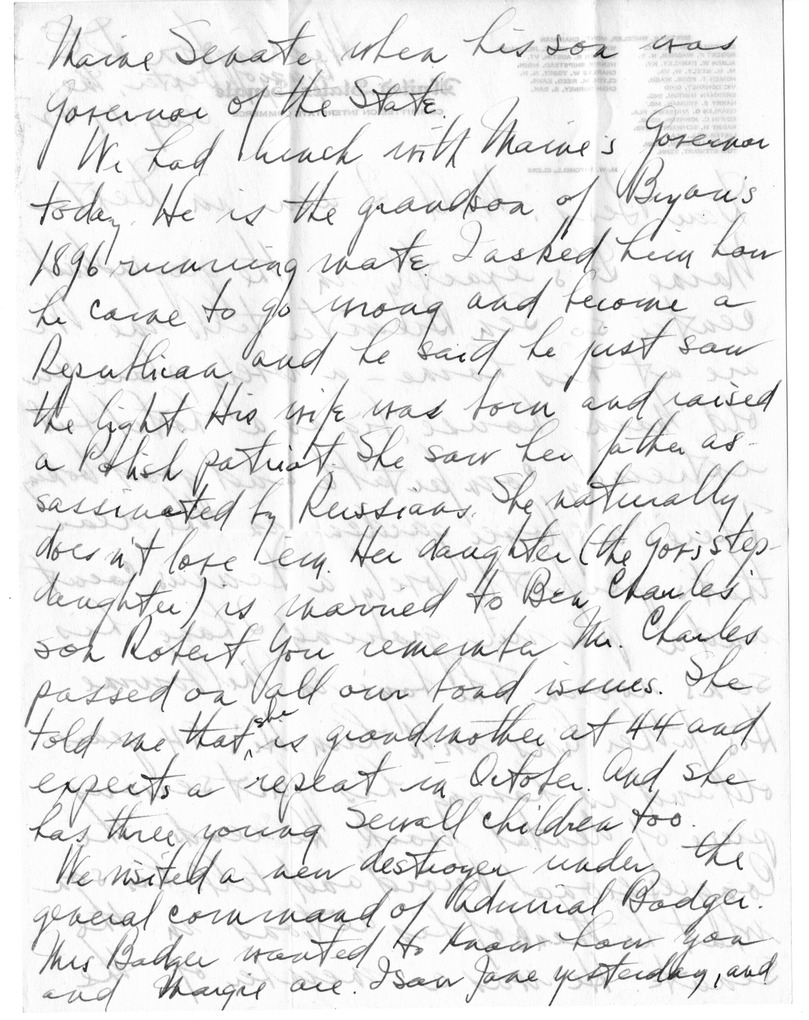 Maine Senate when his son was
Governor of the State.
We had lunch with Maine's Governor
today. He is the grandson of Bryan's
1896 running mate. I asked him how
he came to go wrong and become a
Republican and he said he just saw
the light. His wife was born and raised
a Polish patriot. She saw her father as-
sassinated by Russians. She naturally
doesn't love 'em. Her daughter (the Gov's step-
daughter) is married to Ben Charles'
son Robert. You remember Mr. Charles
passed on all our bond issues. She
told me that she is grandmother at 44 and
expects a repeat in October. And she
has three young Sewall children too.
We visited a new destroyer under the
general command of Admiral Badger.
Mrs Badger wanted to know how you
and Margie are. I saw Jane yesterday, and